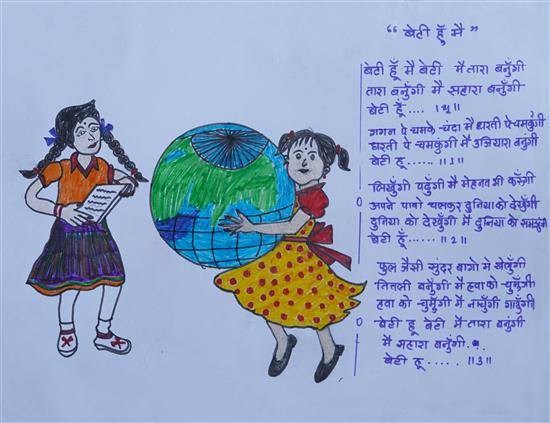 “ बेटी हूँ मै ”
बेटी हूँ मै बेटी मै तारा बनुँगी
तारा बनुंगी मै सहारा बनुंगी
बेटी हूँ .... ॥धृ॥
गगन पे चमके चंदा मै धरती पे चमकुंगी
धरती पे चमकुंगी मै उजियारा बनुंगी
बेटी हू ...... ॥1॥
लिखुँगी पढुँगी मै मेहनत भी करुँगी
अपने पावो चलकर दुनिया को देखुँगी
दुनिया को देखुँगी मै दुनिया को समझुंगी
बेटी हूँ ...... ॥2॥
फुल जैसी सुंदर बागो मे खेलुँगी
तितली बनुंगी मै हवा को चुमुँगी
हवा को चुमुँगी मै नाचुँगी गाउँगी
बेटी हू बेटी मै तारा बनुंगी
मै सहारा बनुंगी
बेटी हू ..... ॥3॥